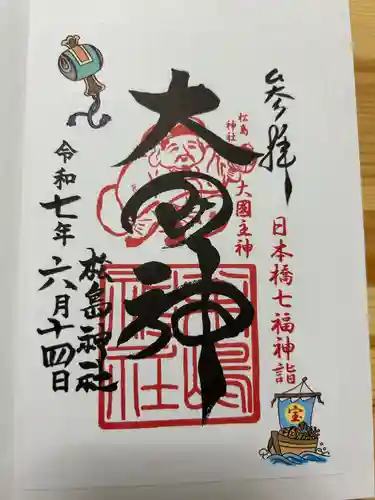 奉拝
日本橋七福神詣
宝
松島
神社
大国主神
大国神
松島神社
松島神社
令和七年六月十四日